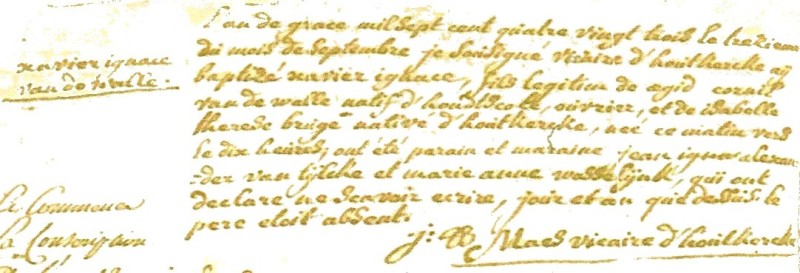 L'an de grace mil sept cent quatre vingt trois le treizieme
du mois de septembre je soussigné vicaire d'houtkercke ay
baptizé xavier ignace, fils legitim de ægid cornil
van de walle natif d'hondscote, ouvrier, et de isabelle
therese brugé nativé d'houtkercke, neé ce matin vers
le dix heures, ont été parain et maraine jean ignas alexan
der van tylcke et marie anne, qui ont
declare ne scavoir ecrire, jour et an que dessus: le
pere etoit absent.
j: B Maes vicaire d'houtkercke
xavier ignace
van de walle.
Le Commence
La Conscription